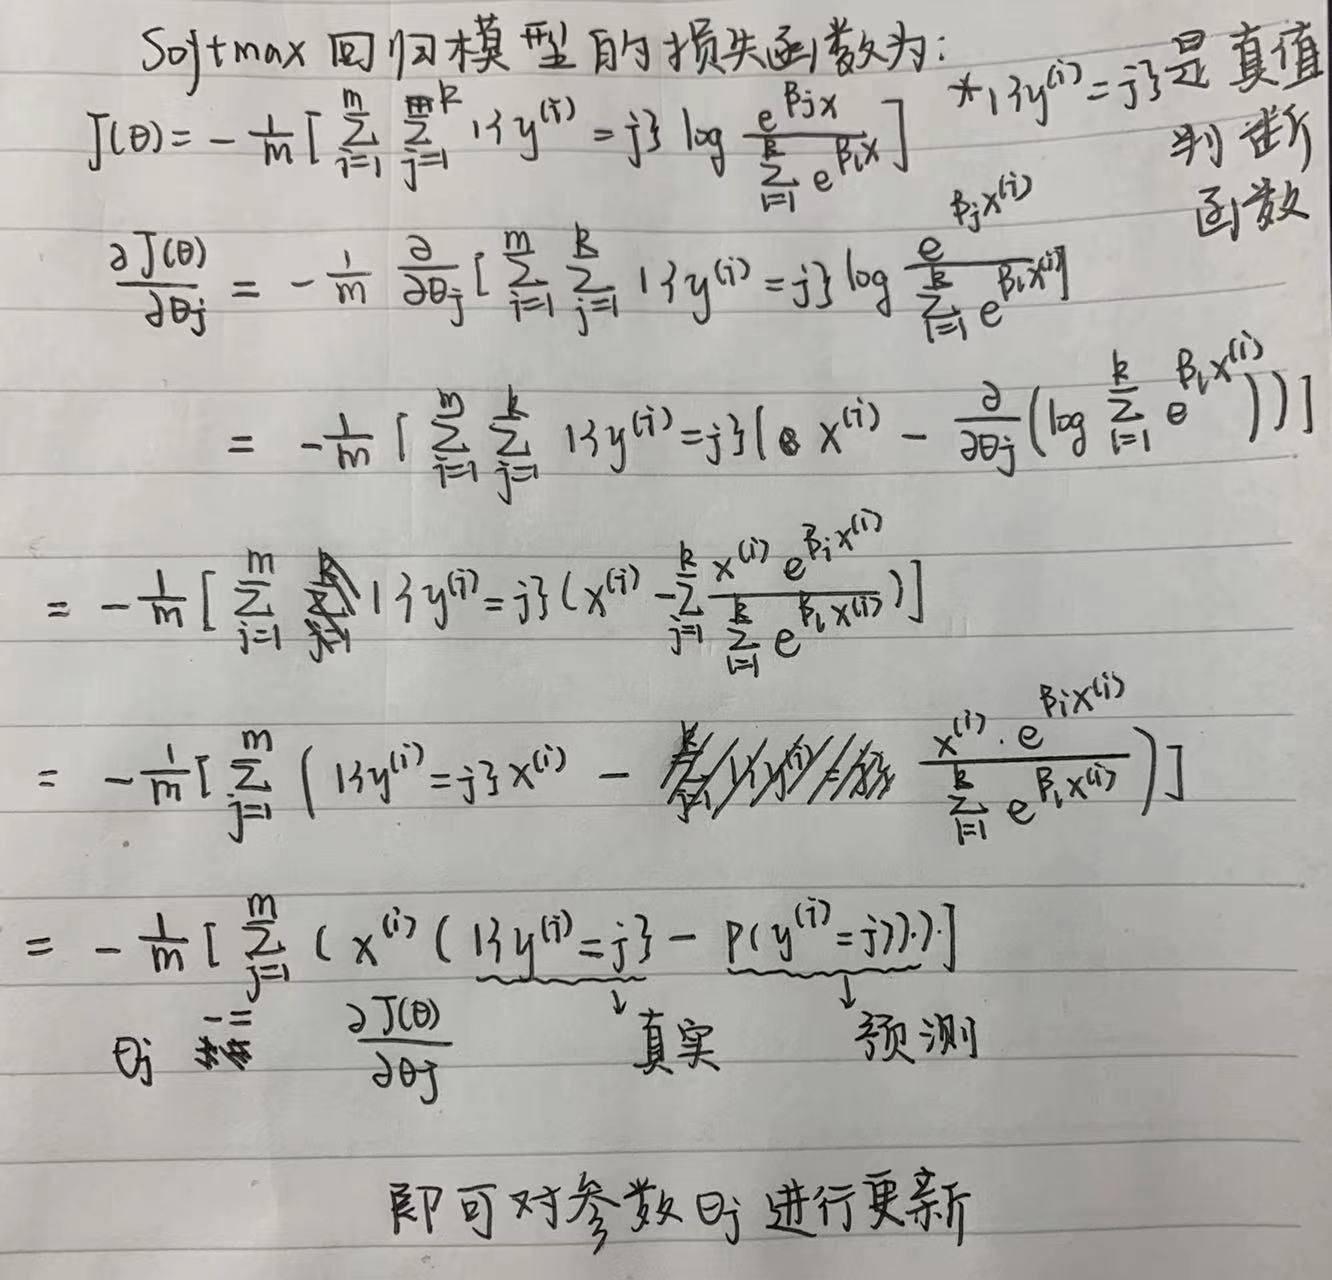 Softmax 回归模型的损失函数为:
J(θ) = - 1/m [ Σ_{i=1}^{m} Σ_{j=1}^{k} 1{y^(i) = j} log e^{βjx} / Σ_{l=1}^{k} e^{βlx} ] *1{y^(i) = j}是真值
判断
函数
∂J(θ)/∂θj = - 1/m ∂/∂θj [ Σ_{i=1}^{m} Σ_{j=1}^{k} 1{y^(i) = j} log e^{βjx^(i)} / Σ_{l=1}^{k} e^{βlx^(i)} ]
= - 1/m [ Σ_{i=1}^{m} Σ_{j=1}^{k} 1{y^(i) = j} ( x^(i) - ∂/∂θj (log Σ_{l=1}^{k} e^{βlx^(i)} )) ]
= - 1/m [ Σ_{j=1}^{m} 1{y^(i) = j} ( x^(i) - Σ_{j=1}^{k} x^(i) e^{βjx^(i)} / Σ_{l=1}^{k} e^{βlx^(i)} ) ]
= - 1/m [ Σ_{j=1}^{m} ( 1{y^(i) = j} x^(i) - x^(i) · e^{βjx^(i)} / Σ_{l=1}^{k} e^{βlx^(i)} ) ]
= - 1/m [ Σ_{j=1}^{m} ( x^(i) ( 1{y^(i) = j} - P(y^(i) = j) ) ) ]
↓ 真实 ↓ 预测
θj -= ∂J(θ)/∂θj
即可对参数θj 进行更新